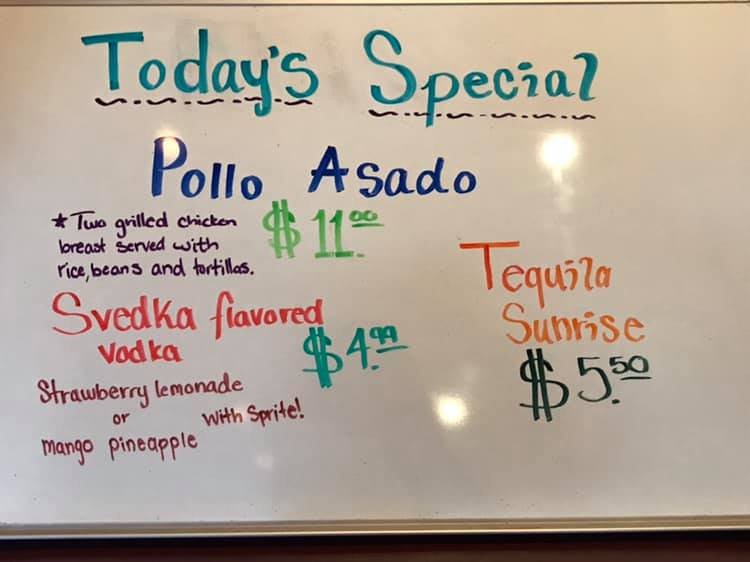 Today's Special
Pollo Asado
* Two grilled chicken
breast served with
rice, beans and tortillas.
$11.00
Svedka flavored
Vodka
$4.99
Strawberry lemonade
or
mango pineapple
with Sprite!
Tequila
Sunrise
$5.50